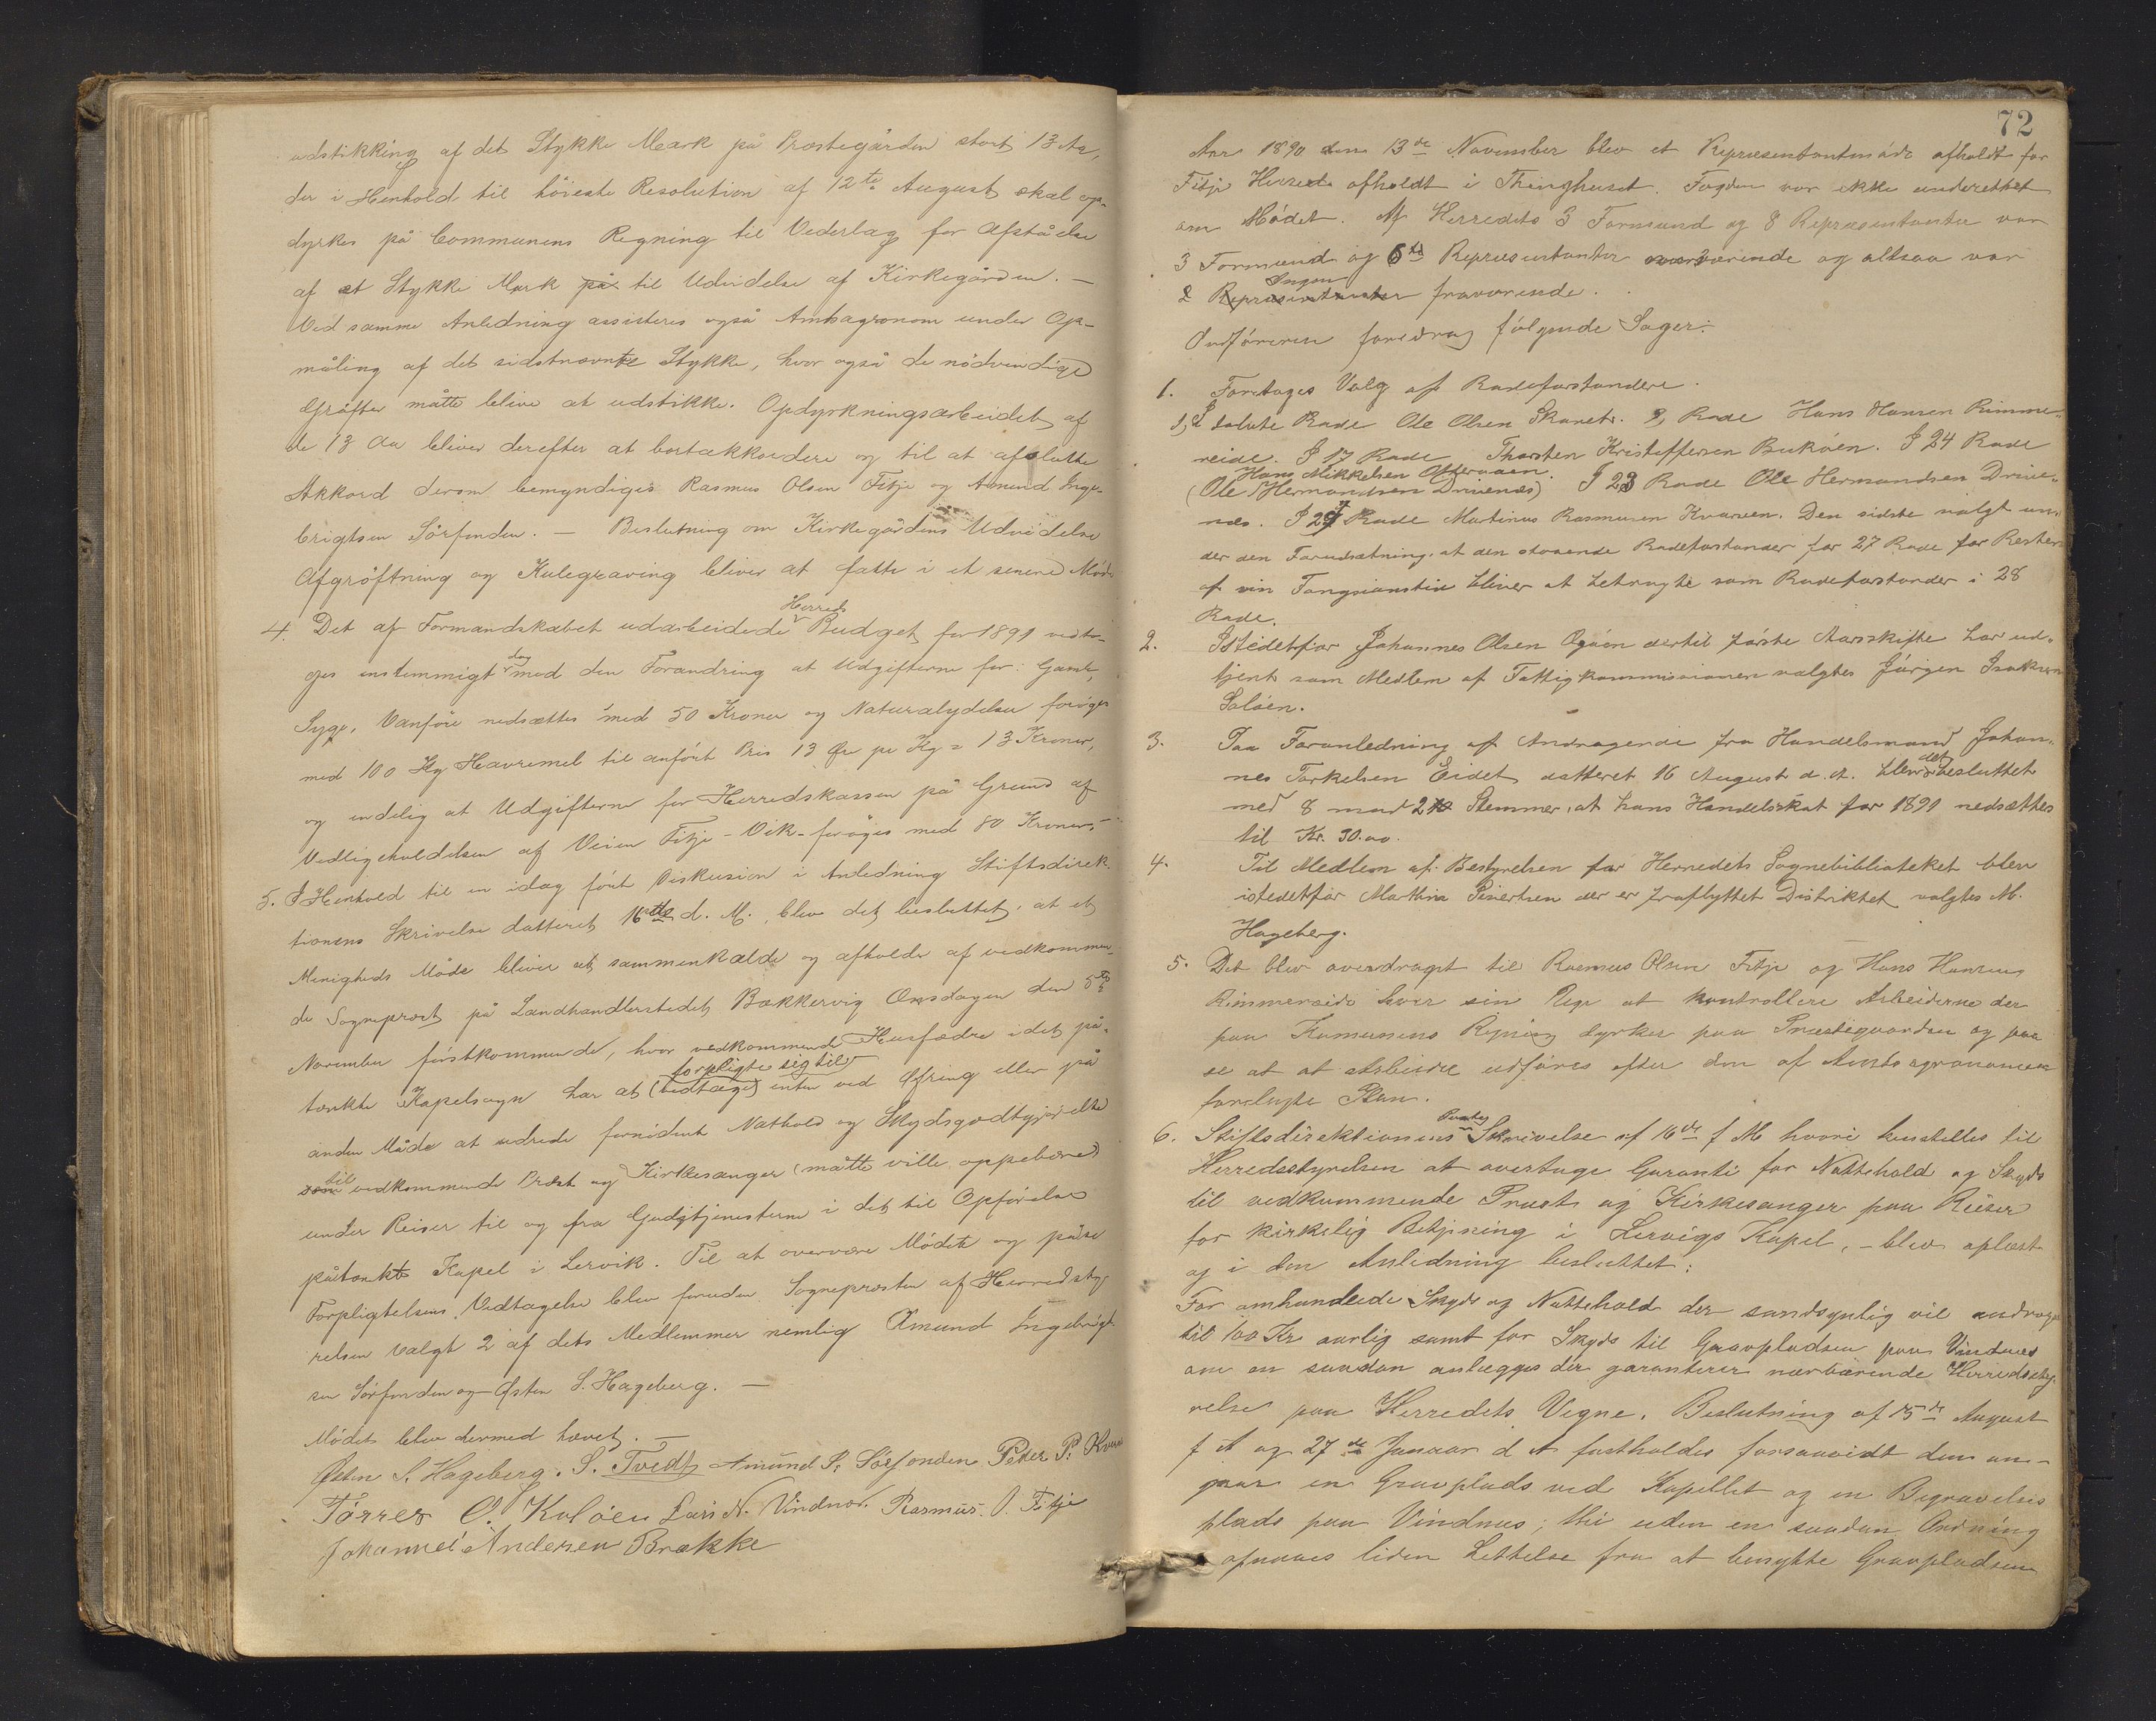 udstikking af det Stykke Mark på Præstegården stort 13 Ar,
der i Henhold til höieste Resolution af 12te August skal op-
dyrkes på Communens Regning til Vederlag for Afståelse
af et Stykke Mark på til Udvidelse af Kirkegården. —
Ved samme Anledning assisteres også Amtsagronom under Op-
måling af det sidstnævnte Stykke, hvor også de nödvendige
Gröfter måtte blive at udstikke. Opdyrkningsarbeidet af
de 13 Ar bliver derefter at bortakkordere og til at afslutte
Akkord derom bemyndiges Rasmus Olsen Fitje og Amund Inge-
brigtsen Sörfonden. — Beslutning om Kirkegårdens Udvidelse
Afgröftning og Kulegraving bliver at fatte i et senere Möde
4. Det af Formandskabet udarbeidede Herreds Budget for 1891 vedto-
ges enstemmigt dog med den Forandring at Udgifterne for: Gamle,
Syge, Vanföre nedsættes med 50 Kroner og Naturalydelser foröges
med 100 Kg Havremel til anfört Pris 13 Öre pr Kg = 13 Kroner,
og endelig at Udgifterne for Herredskassen på Grund af
Vedligeholdelsen af Veien Fitje - Vik - foröges med 80 Kroner. —
5. I Henhold til en idag fört Diskusion i Anledning Stiftsdirek-
tionens Skrivelse datteret 16de d. M. blev det besluttet, at et
Menigheds Möde bliver at sammenkalde og afholdes af vedkommen-
de Sogneprest på Landhandlerstedet Bækkervig Onsdagen den 5te
November förstkommende, hvor vedkommende Husfædre i det på-
tænkte Kapelsogn har at (vedtage) forpligte sig til enten ved Ofring eller på
anden Måde at udrede fornödent Nathold og Skydsgodtgjörelse
som til vedkommende Præst og Kirkesanger (måtte ville oppebære)
under Reiser til og fra Gudstjenesterne i det til Opförelse
påtænkte Kapel i Lervik. Til at overvære Mödet og påse
Forpligtelsens Vedtagelse blev foruden Sognepresten af Herredsty-
relsen valgt 2 af dets Medlemmer nemlig Amund Ingebrigt-
sen Sörfonden og Østen S. Hageberg. —
Mödet blev dermed hævet. —
Østen S. Hageberg. S. Tvedt Amund I. Sörfonden Peter P.
Törres O. Koløen Lars N. Vindnes. Rasmus O. Fitje
Johannes Andersen Brække
72
Aar 1890 den 13de November blev et Repræsentantmöde afholdt for
Fitje Herred afholdt i Thinghuset. Fogden var ikke underettet
om Mödet. Af Herredets 3 Formænd og 8 Repræsentanter var
3 Formænd og 8te Repræsentanter nærværende og altsaa var
2 Repræsentanter Ingen fraværende.
Ordföreren foredrog fölgende Sager:
1. Foretoges Valg af Rodeforstandere.
1, I solute Rode Ole Olsen Skaret. 2, Rode Hans Hansen Rimme-
reide. I 17 Rode Thorsten Kristoffersen Bukøen. I 24 Rode
Hans Mikkelsen
(Ole Hermandsen Drivenes) I 23 Rode Ole Hermandsen Drive-
nes. I 27 Rode Martinus Rasmusen Kvarven. Den sidste valgt un-
der den Forudsætning at den staaende Rodeforstander for 27 Rode for Resten
af sin Fungsionstid bliver at betragte som Rodeforstander i 28
Rode.
2. Istedetfor Johannes Olsen der til förste Aarsskifte har ud-
tjent som Medlem af Fattigkommissionen valgtes Jörgen Isaksen
Saløen.
3. Paa Foranledning af Andragende fra Handelsmand Johan-
nes Torkelsen Eidet datteret 16 August d. A. blev det besluttet
med 8 mod 2 Stemmer, at hans Handelsskat for 1891 nedsættes
til Kr. 30.00.
4. Til Medlem af Bestyrelsen for Herredets Sognebibliotheket blev
istedetfor Martin Sivertsen der er fraflyttet Distriktet valgtes M.
Hageberg.
5. Det blev overdraget til Rasmus Olsen Fitje og Hans Hansen
Rimmereide hver sin Uge at kontrollere Arbeiderne der
paa Komunens Regning dyrkes paa Præstegaarden og paa
se at at Arbeidet udföres efter den af Amtsagronomen
forelagte Plan.
6. Stiftsdirektionens Skrivelse af 16de f M hvori henstilles til
Herredsstyrelsen at overtage Garanti for Nattehold og Skyds
til vedkommende Præst og Kirkesanger paa Reiser
for kirkelig Betjening i Lervigs Kapel, - blev oplæst
og i den Anledning besluttet:
For omhandlede Skyds og Nattehold der sandsynlig vil andrage
til 100 Kr. aarlig samt for Skyds til Gravpladsen paa Vindnes
om en saadan anlægges der garanterer nærværende Herredssty-
relse paa Herredets Vegne. Beslutning af 15de August
f A og 27de Januar d A fastholdes forsaavidt dem an-
gaar en Gravplads ved Kapellet og en Begravelses
plads paa Vindnes; thi uden en saadan Ordning
opnaaes liden Lettelse fra at benytte Gravpladsen